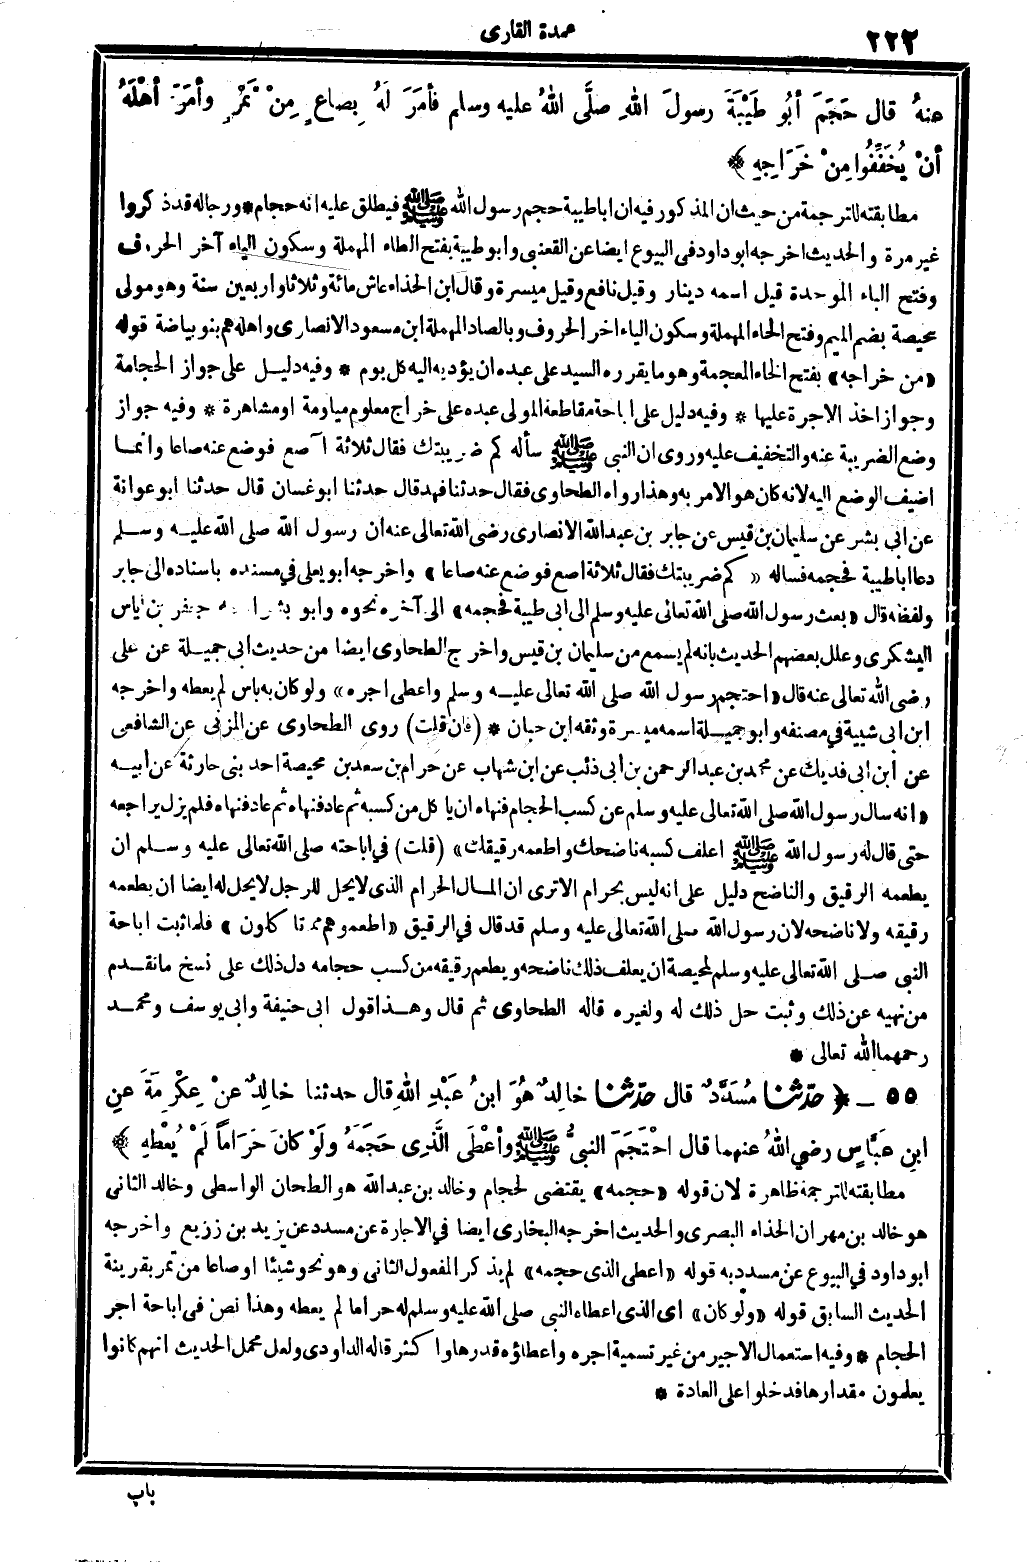 ٢٢٢
عمدة القارى
عنهُ قال حَجَمَ أبُو طَيْبَةَ رسولَ اللهِ صلَّى اللهُ عليه وسلم فأمَرَ لَهُ بِصاعٍ مِنْ تَمْرٍ وأمَرَ أهْلَهُ
أنْ يُخَفِّفُوا مِنْ خَرَاجِهِ ﴾
مطابقته للترجمة من حيث ان المذكور فيه ان اباطيبة حجم رسول الله ﷺ فيطلق عليه انه حجام * ورجاله قد ذكروا
غير مرة والحديث اخرجه ابو داود فى البيوع ايضا عن القعنبى وابو طيبة بفتح الطاء المهملة وسكون الياء آخر الحروف
وفتح الباء الموحدة قيل اسمه دينار وقيل نافع وقيل ميسرة وقال ابن الحذاء عاش مائة وثلاثا واربعين سنة وهو مولى
محيصة بضم الميم وفتح الحاء المهملة وسكون الياء اخر الحروف وبالصاد المهملة ابن مسعود الانصارى واهله هم بنو بياضة قوله
«من خراجه» بفتح الخاء المعجمة وهو ما يقرره السيد على عبده ان يؤديه اليه كل يوم * وفيه دليل على جواز الحجامة
وجواز اخذ الاجرة عليها * وفيه دليل على اباحة مقاطعة المولى عبده على خراج معلوم مياومة او مشاهرة * وفيه جواز
وضع الضريبة عنه والتخفيف عليه وروى ان النبى ﷺ سأله كم ضريبتك فقال ثلاثة آصع فوضع عنه صاعا وانما
اضيف الوضع اليه لانه كان هو الامر به وهذا رواه الطحاوى فقال حدثنا فهد قال حدثنا ابو غسان قال حدثنا ابو عوانة
عن ابى بشر عن سليمان بن قيس عن جابر بن عبدالله الانصارى رضى الله تعالى عنه ان رسول الله صلى الله عليه وسلم
دعا اباطيبة فحجمه فساله «كم ضريبتك فقال ثلاثة اصع فوضع عنه صاعا» واخرجه ابو يعلى فى مسنده باسناده الى جابر
ولفظه قال «بعث رسول الله صلى الله تعالى عليه وسلم الى ابى طيبة فحجمه» الى آخره نحوه وابو بشر اسمه جعفر بن اياس
اليشكرى وعلل بعضهم الحديث بانه لم يسمع من سليمان بن قيس واخرج الطحاوى ايضا من حديث ابى جميلة عن على
رضى الله تعالى عنه قال «احتجم رسول الله صلى الله تعالى عليه وسلم واعطى اجره» ولو كان به باس لم يعطه واخرجه
ابن ابى شيبة فى مصنفه وابو جميلة اسمه ميسرة وثقه ابن حبان * (فان قلت) روى الطحاوى عن المزنى عن الشافعى
عن ابن ابى فديك عن محمد بن عبد الرحمن بن أبى ذئب عن ابن شهاب عن حرام بن سعد بن محيصة احد بنى حارثة عن أبيه
«انه سال رسول الله صلى الله تعالى عليه وسلم عن كسب الحجام فنهاه ان ياكل من كسبه ثم عاد فنهاه ثم عاد فنهاه فلم يزل يراجعه
حتى قال له رسول الله ﷺ اعلف كسبه ناضحك واطعمه رقيقك» (قلت) فى اباحته صلى الله تعالى عليه وسلم ان
يطعمه الرقيق والناضح دليل على انه ليس بحرام الا ترى ان المال الحرام الذى لا يحل للرجل لا يحل له ايضا ان يطعمه
رقيقه ولا ناضحه لان رسول الله صلى الله تعالى عليه وسلم قد قال فى الرقيق «اطعموهم مما تاكلون» فلما ثبت اباحة
النبى صلى الله تعالى عليه وسلم لمحيصة ان يعلف ذلك ناضحه ويطعم رقيقه من كسب حجامه دل ذلك على نسخ ما تقدم
من نهيه عن ذلك وثبت حل ذلك له ولغيره قاله الطحاوى ثم قال وهذا قول ابى حنيفة وابى يوسف ومحمد
رحمهما الله تعالى *
٥٥ - ﴿ حدّثنا مُسَدَّدٌ قال حدّثنا خالِدٌ هُوَ ابنُ عَبْدِ اللهِ قال حدثنا خالِدٌ عنْ عِكْرِمَةَ عنِ
ابنِ عَبَّاسٍ رضي اللهُ عنهما قال احْتَجَمَ النبيُّ ﷺ وأعْطَى الَّذِى حَجَمَهُ ولَوْ كانَ حَرَاماً لَمْ يُعْطِهِ ﴾
مطابقته للترجمة ظاهرة لان قوله «حجمه» يقتضى لحجام وخالد بن عبدالله هو الطحان الواسطى وخالد الثانى
هو خالد بن مهران الحذاء البصرى والحديث اخرجه البخارى ايضا فى الاجارة عن مسدد عن يزيد بن زريع واخرجه
ابو داود فى البيوع عن مسدد به قوله «اعطى الذى حجمه» لم يذكر المفعول الثانى وهو نحو شيئا او صاعا من تمر بقرينة
الحديث السابق قوله «ولو كان» اى الذى اعطاه النبى صلى الله عليه وسلم له حراما لم يعطه وهذا نص فى اباحة اجر
الحجام * وفيه استعمال الاجير من غير تسمية اجره واعطاؤه قدرها واكثر قاله الداودى ولعل محمل الحديث انهم كانوا
يعلمون مقدارها فدخلوا على العادة *
باب